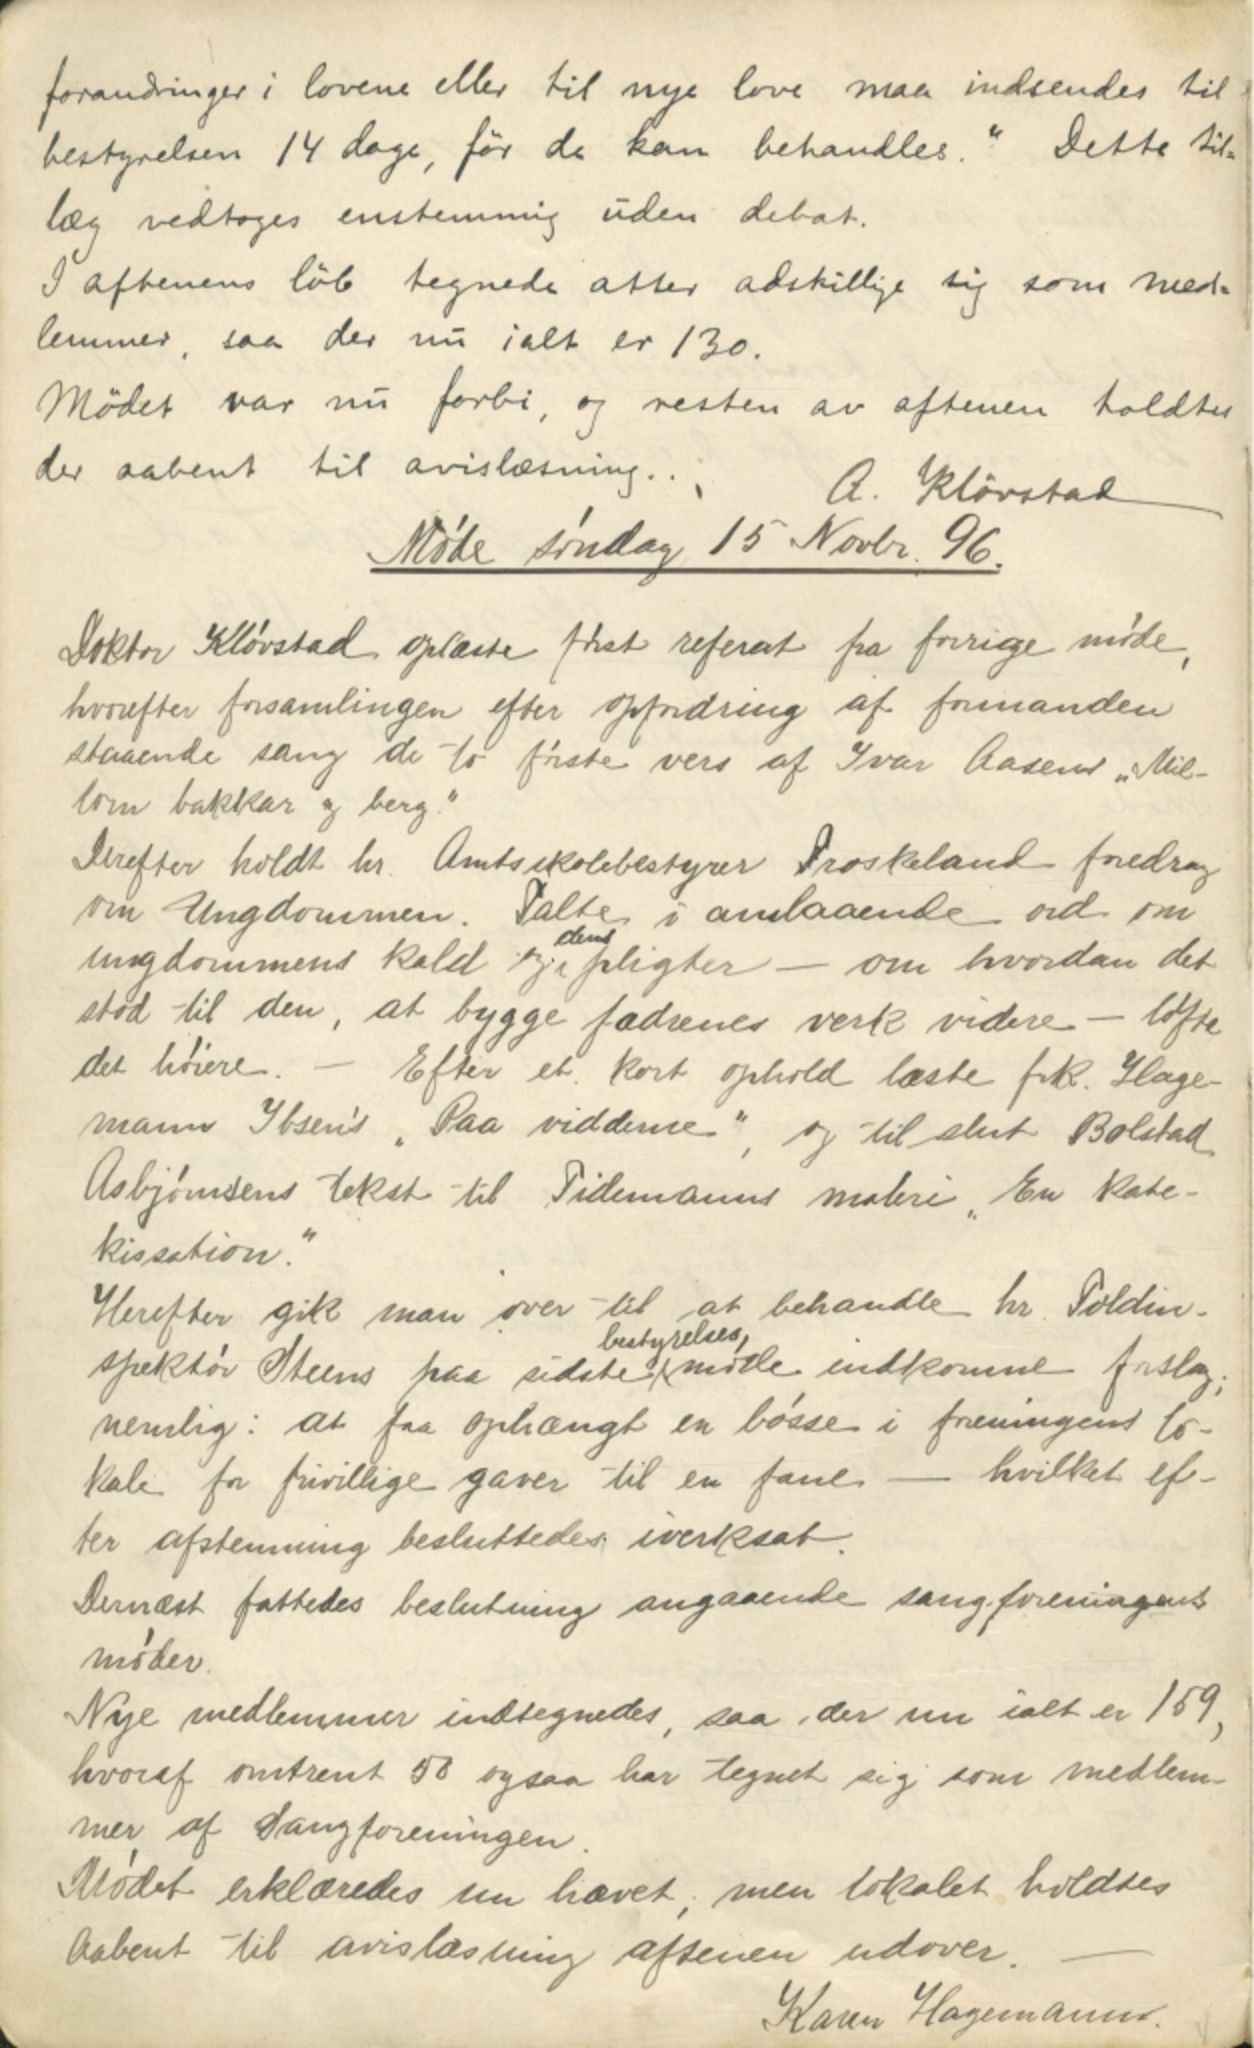 forandringer i lovene eller til nye love maa indsendes til
bestyrelsen 14 dage, för de kan behandles." Dette til-
læg vedtoges enstemmig uden debat.
I aftenens löb tegnede atter adskillige sig som med-
lemmer, saa der nu ialt er 130.
Mödet var nu forbi, og resten av aftenen holdtes
der aabent til avislæsning.
A. Klövstad
Møde søndag 15 Novbr. 96.
Doktor Kløvstad oplæste først referat fra forrige møde,
hvorefter forsamlingen efter opfordring af formanden
staaende sang de to første vers af Ivar Aasens „Mil-
lom bakkar og berg."
Derefter holdt hr. Amtsskolebestyrer Troskeland foredrag
om Ungdommen. Talte i anslaaende ord om
ungdommens kald og dens pligter — om hvordan det
stod til den, at bygge fædrenes verk videre — løfte
det høiere. — Efter et kort ophold læste frk. Hage-
mann Ibsen's „Paa vidderne", og til slut Bolstad
Asbjørnsens tekst til Tidemanns maleri „En kate-
kisation."
Herefter gik man over til at behandle hr. Toldin-
spektør Steens paa sidste bestyrelses, møde indkomne forslag;
nemlig: at faa ophængt en bøsse i foreningens lo-
kale for frivillige gaver til en fane — hvilket ef-
ter afstemning besluttedes iverksat.
Dernæst fattedes beslutning angaaende sangforeningens
møder.
Nye medlemmer indtegnedes, saa der nu ialt er 159,
hvoraf omtrent 50 ogsaa har tegnet sig som medlem-
mer af Sangforeningen.
Mødet erklæredes nu hævet, men lokalet holdtes
aabent til avislæsning aftenen udover. —
Karen Hagemann.